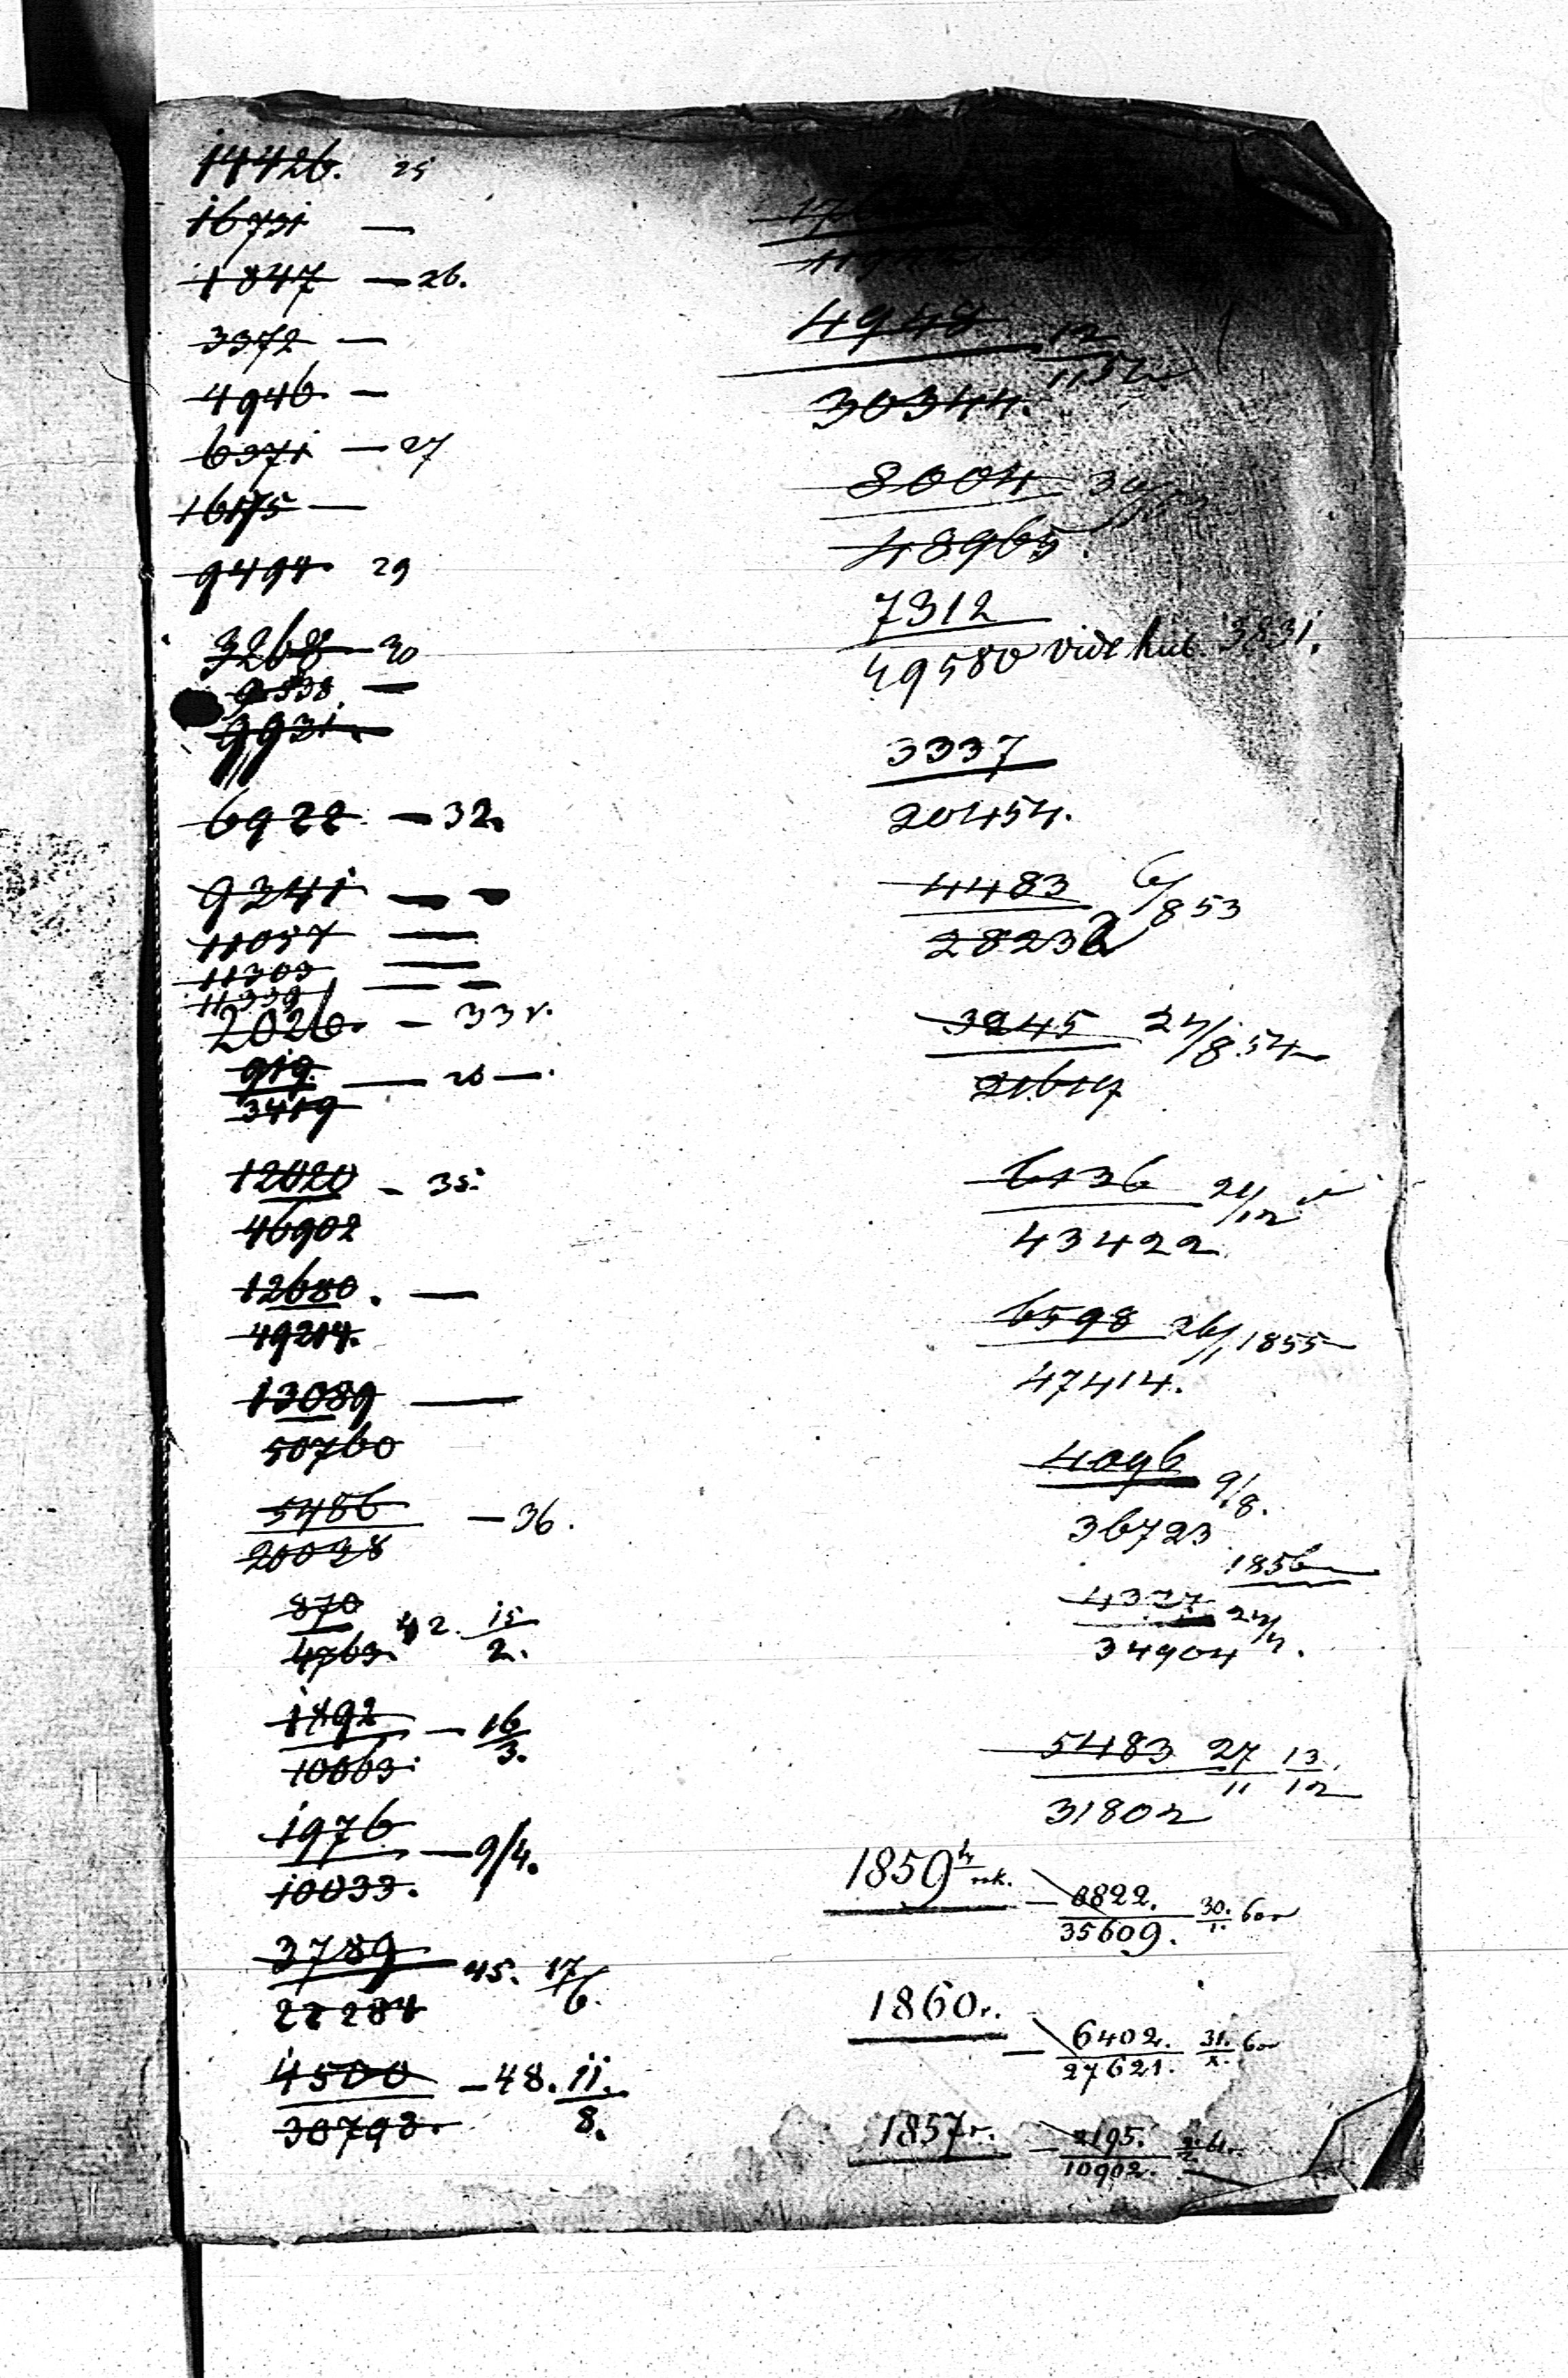 14426. 25
16731 —
1847 — 26.
3372 —
4946 —
6371 — 27
16175 —
9494. 29
3268 — 30
9838. —
9931. —
6922 — 32.
9241 — —
11057 —
11303 —
11339 — —
2026. — 33 r.
919.
3419 — 26 —.
12020 — 35.
46902
12680. —
49214.
13089 —
50760
5486 — 36.
20038
870
4763. 42. 15/2.
1892 — 16/3.
10663.
1976 — 9/4.
10033.
3789 45. 17/6.
22284
4500 — 48. 11./8.
30793.
4948 12/11 52
30344.
8004
48965
7312
49580 vide hic 3831.
3337
20454.
4483 6/8 53
28232
3245 24/8 54
21617
6136 21/12
43422
6598 26/1 1855
47414.
4096 9/8.
36723
1856
4327
34904
5483 27/11 13/12
31802
1859
6822. 30.
35609.
1860 r.
6402. 31.
27621.
1857 r.
2195.
10902.